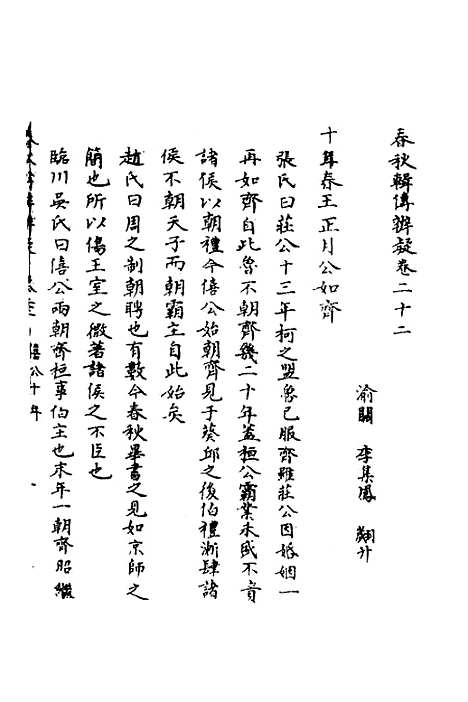 春秋輯傳辨疑卷二十二
渝關 李集鳳 翽升
十年春王正月公如齊
張氏曰莊公十三年柯之盟魯已服齊雖莊公因婚姻一
再如齊自此魯不朝齊幾二十年蓋桓公霸業未盛不責
諸侯以朝禮今僖公始朝齊見于葵邱之後伯禮漸肆諸
侯不朝天子而朝霸主自此始矣
趙氏曰周之制朝聘也有數今春秋畢書之見如京師之
簡也所以傷王室之微著諸侯之不臣也
臨川吳氏曰僖公兩朝齊桓事伯主也末年一朝齊昭繼
僖公十年